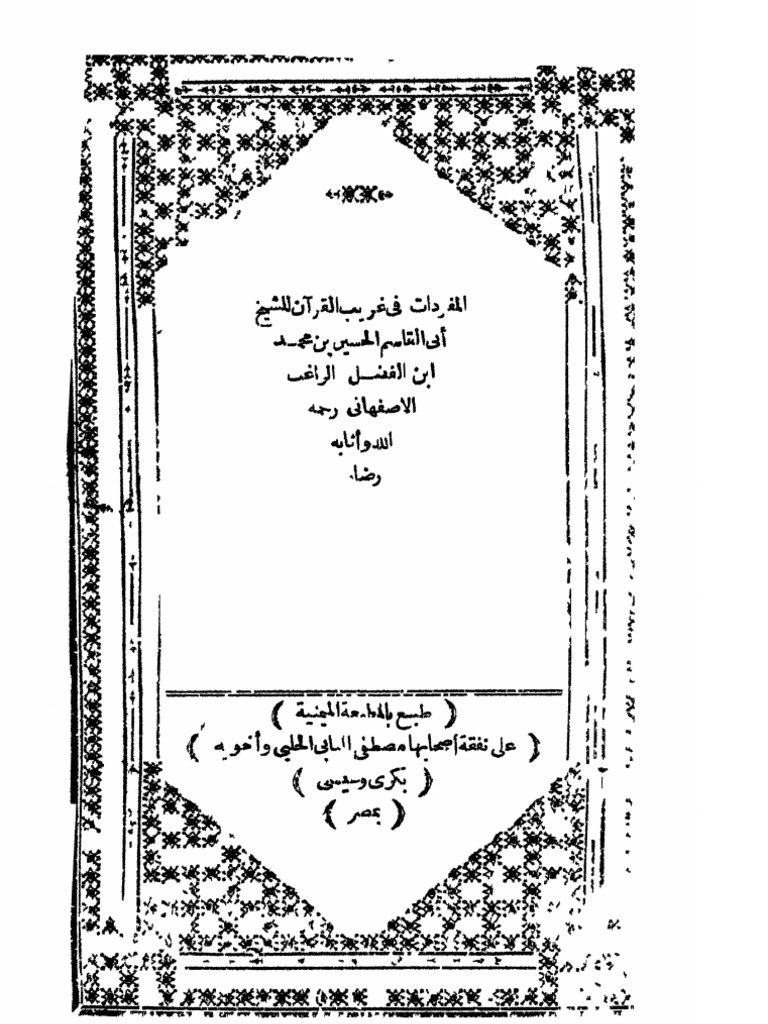 المفردات فى غريب القرآن للشيخ
أبى القاسم الحسين بن محمد
ابن الفضل الراغب
الاصفهانى رحمه
الله وأثابه
رضاه
( طبع بالمطبعة الميمنية )
( على نفقة أصحابها مصطفى البابى الحلبى وأخويه )
( بكرى وعيسى )
( بمصر )